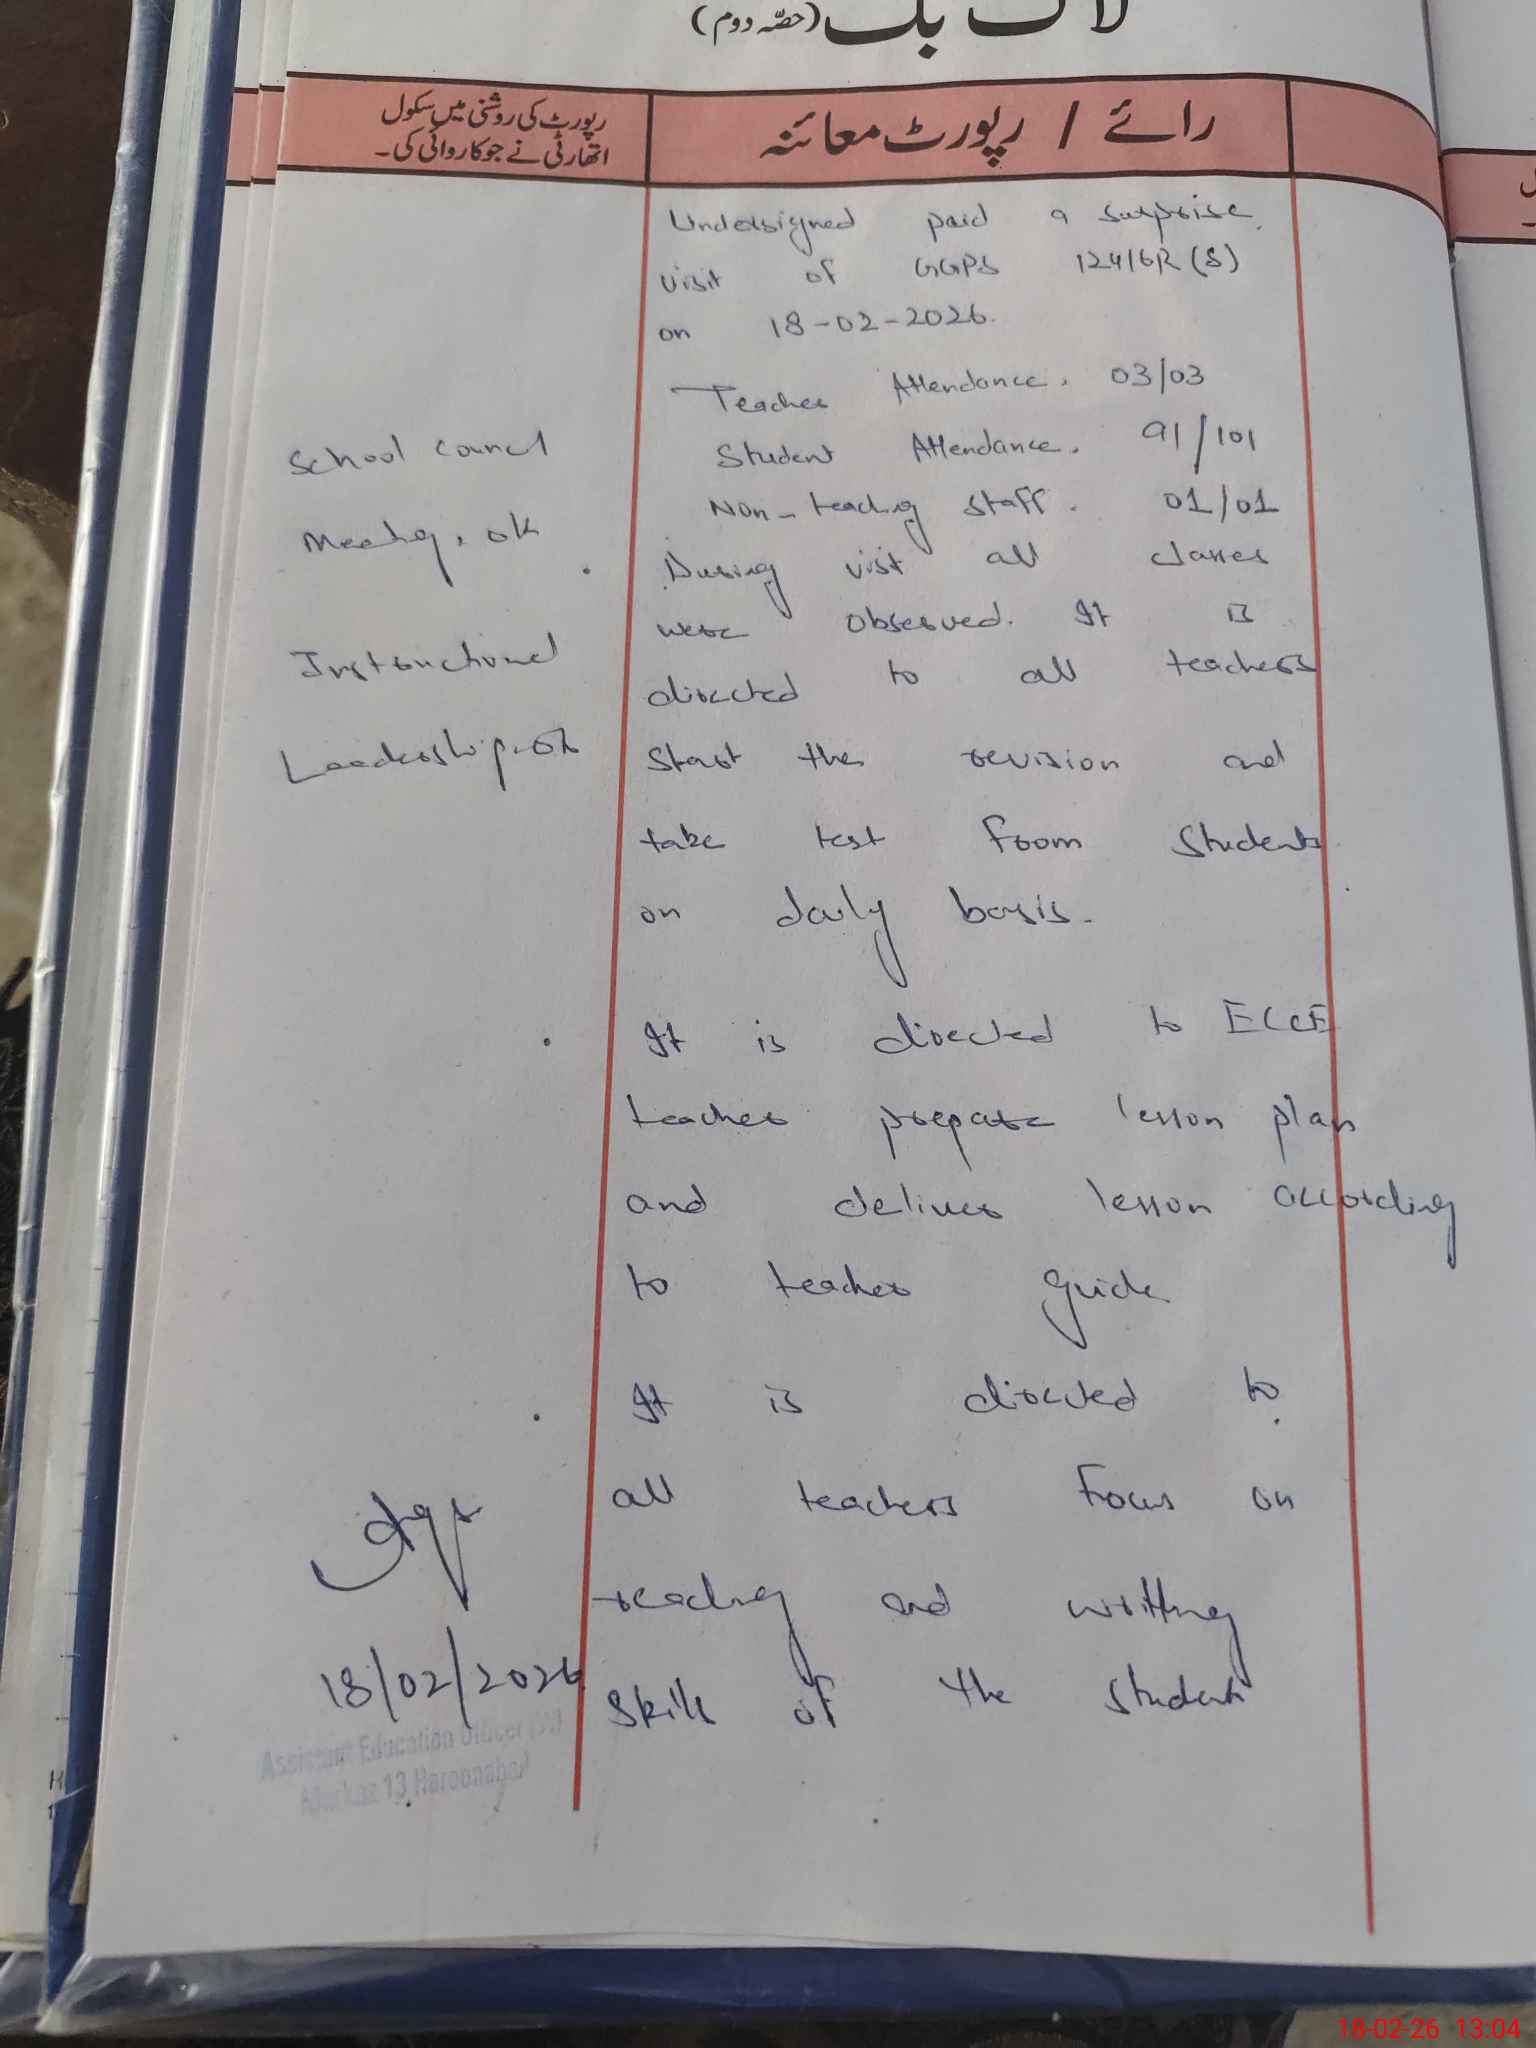 لاگ بک (حصّہ دوم)
رائے / رپورٹ معائنہ
رپورٹ کی روشنی میں سکول
اتھارٹی نے جو کاروائی کی۔
Undersigned paid a surprise
visit of GGPS 124/6R (S)
on 18-02-2026.
Teacher Attendance. 03/03
Student Attendance. 91/101
Non-teaching staff. 01/01
During visit all classes
were observed. It is
directed to all teachers
start the revision and
take test from students
on daily basis.
It is directed to ECCE
teacher prepare lesson plan
and deliver lesson according
to teacher guide
It is directed to
all teachers focus on
reading and writting
skills of the students
School council
Meeting. ok
Instructional
Leadership. ok
18/02/2026
Assistant Education Officer
Markaz 13 Haroonabad
18-02-26 13:04